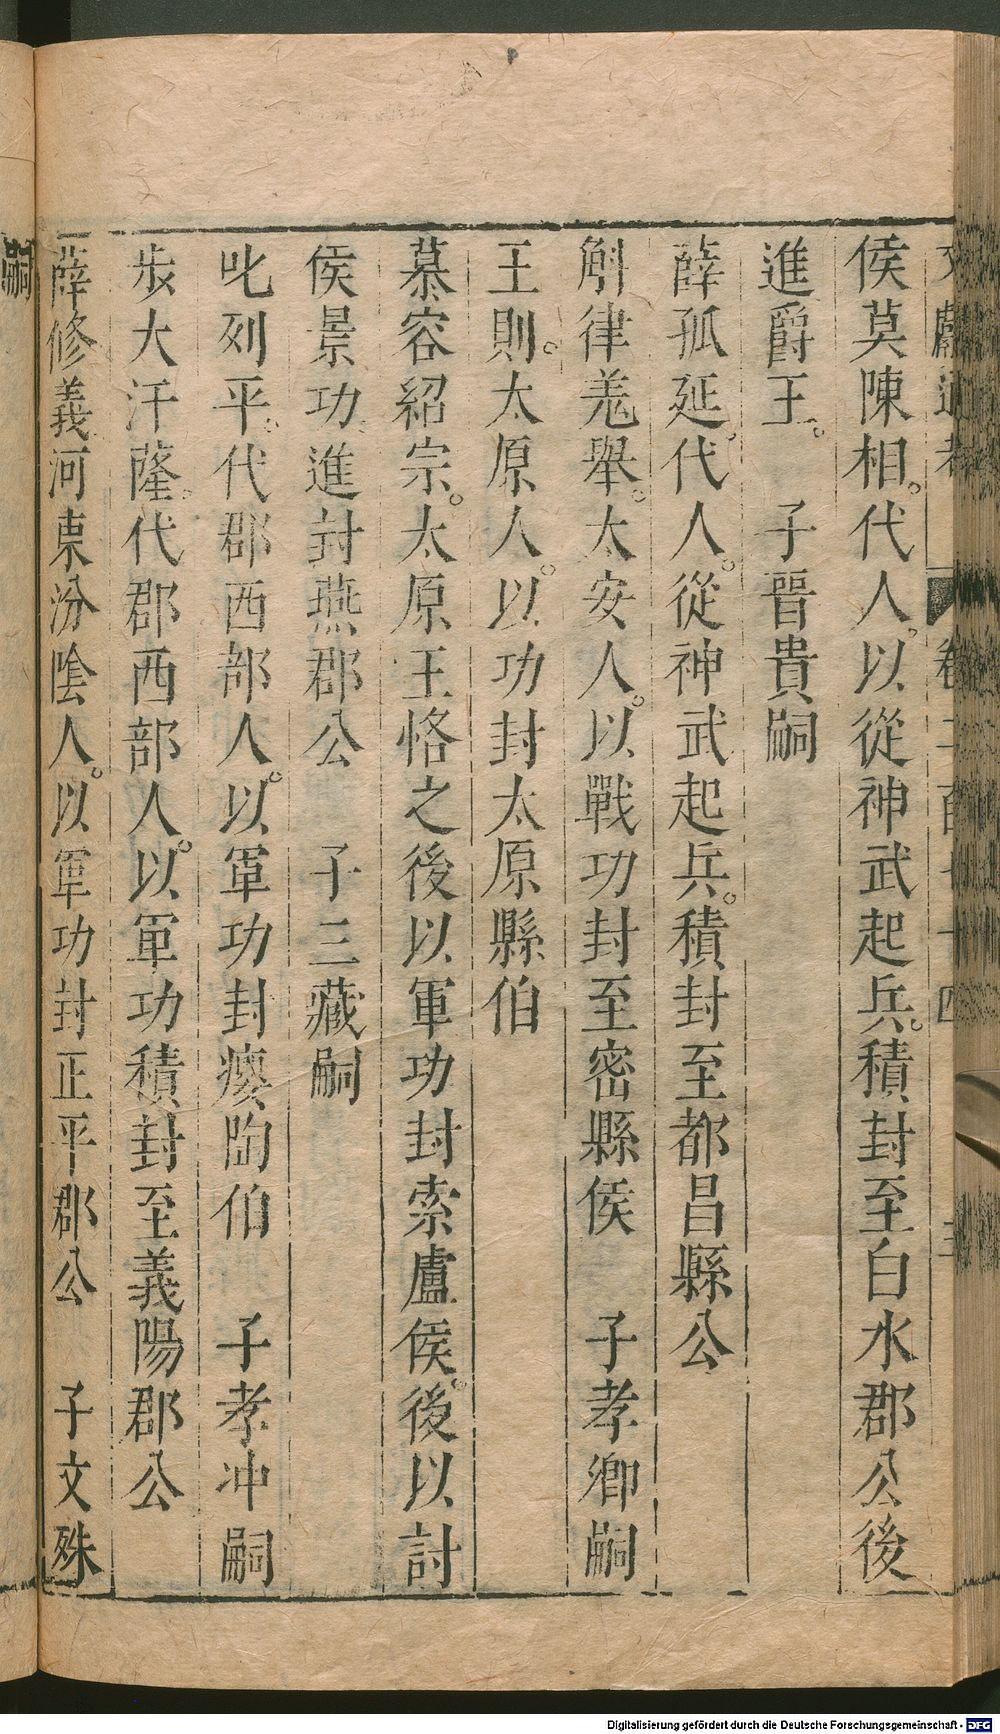 侯莫陳相。代人。以從神武起兵。積封至白水郡公後
進爵王。　子晉貴嗣
薛孤延。代人。從神武起兵。積封至都昌縣公
斛律羗舉。太安人。以戰功封至密縣侯　子孝卿嗣
王則。太原人。以功封太原縣伯
慕容紹宗。太原王恪之後以軍功封索盧侯。後以討
侯景功進封燕郡公　子三藏嗣
叱列平。代郡西部人。以軍功封瘿陶伯　子孝冲嗣
步大汗薩。代郡西部人。以軍功積封至義陽郡公
薛修義河東汾陰人。以軍功封正平郡公　子文殊
嗣
Digitalisierung gefördert durch die Deutsche Forschungsgemeinschaft - DFG